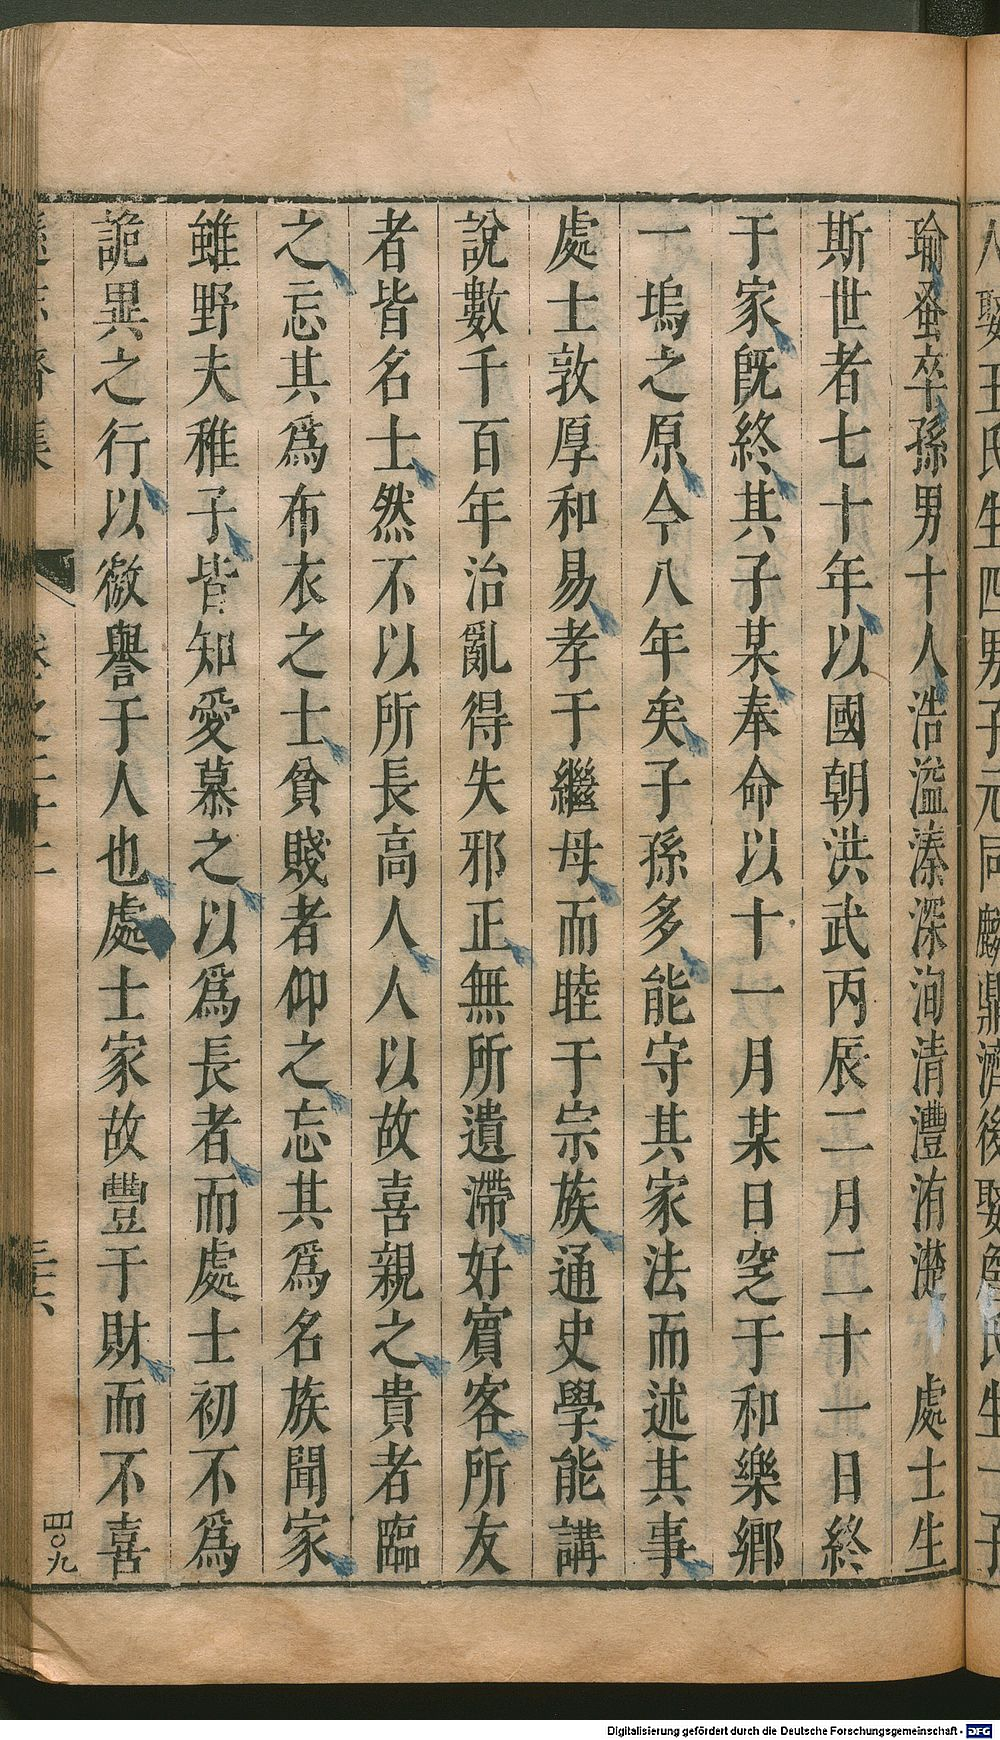 瑜蚤卒孫男十人浩溢溱深洵清灃洧濋　處士生
斯世者七十年以國朝洪武丙辰二月二十一日終
于家旣終其子某奉命以十一月某日窆于和樂鄉
一塢之原今八年矣子孫多能守其家法而述其事
處士敦厚和易孝于繼母而睦于宗族通史學能講
說數千百年治亂得失邪正無所遺滯好賓客所友
者皆名士然不以所長高人人以故喜親之貴者臨
之忘其爲布衣之士貧賤者仰之忘其爲名族聞家
雖野夫稚子皆知愛慕之以爲長者而處士初不爲
詭異之行以徼譽于人也處士家故豐于財而不喜
四〇九
Digitalisierung gefördert durch die Deutsche Forschungsgemeinschaft - DFG